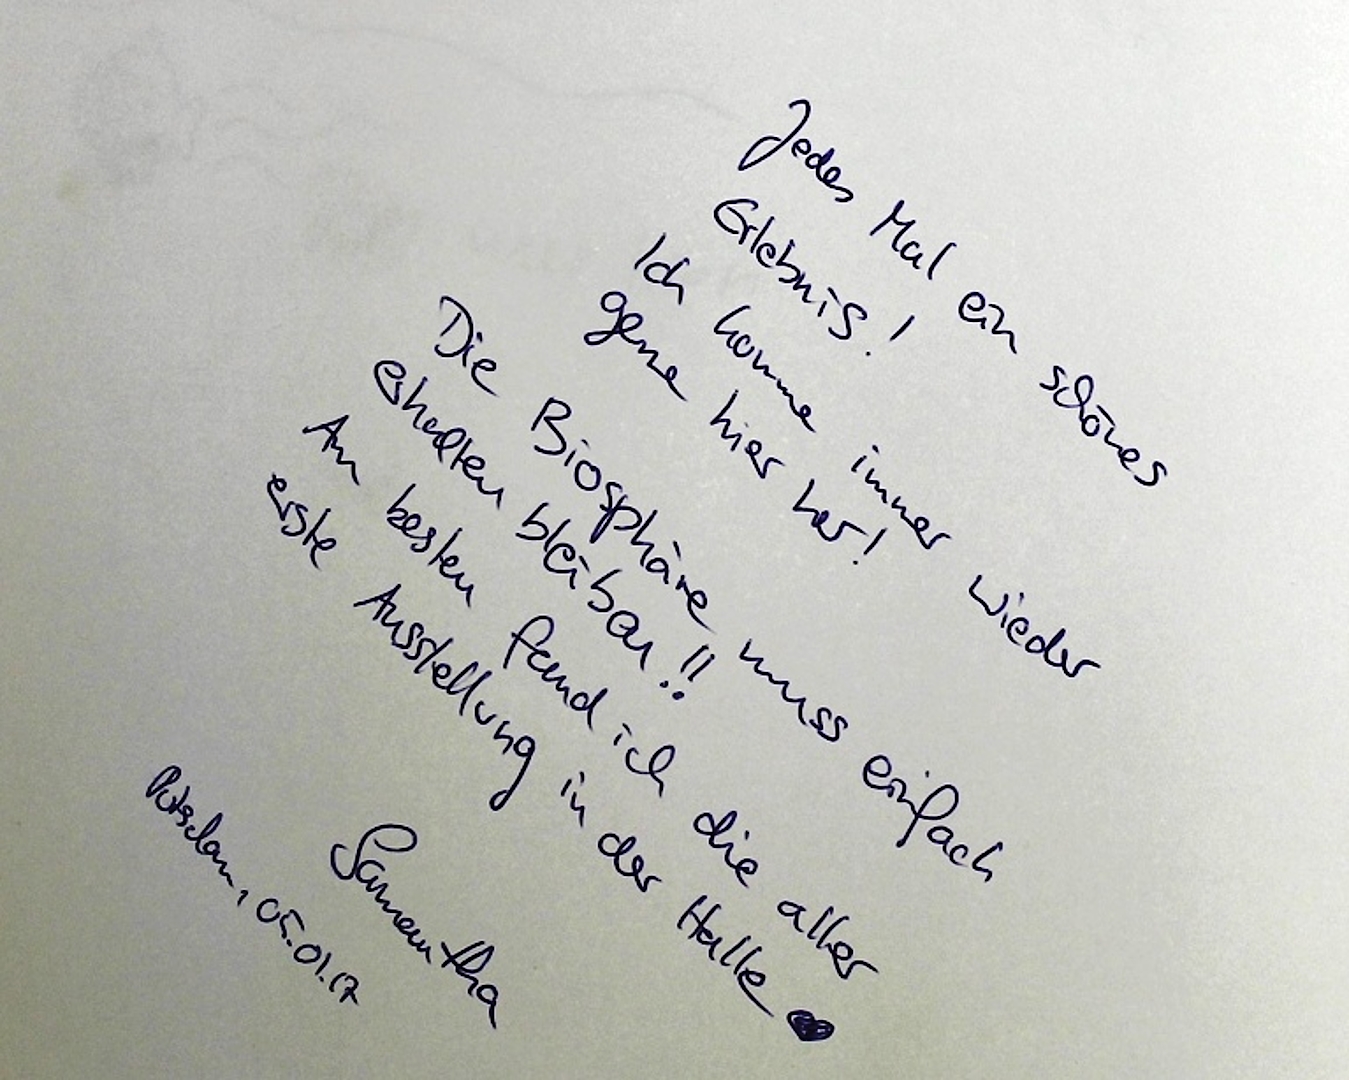 Jedes Mal ein schönes
Erlebnis!
Ich komme immer wieder
gerne hier her!
Die Biosphäre muss einfach
erhalten bleiben!!
Am besten fand ich die aller
erste Ausstellung in der Halle ♥
Samantha
Potsdam, 05.01.17